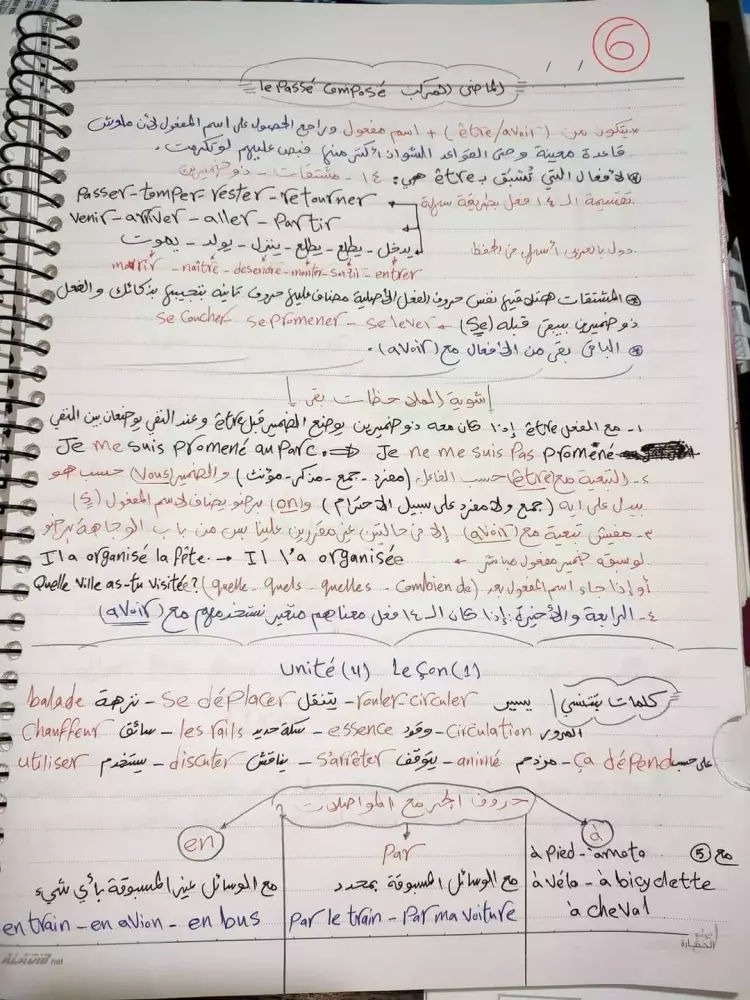 6
/ /
الماضي المركب le Passé Composé
* يتكون من (être/avoir) + اسم مفعول وراجع الحصول على اسم المفعول لأن ملوش
قاعدة معينة وحتى القواعد الشواذ أكتر منها فبص عليهم لو تكرمت.
* الأفعال التي تُسبق بـ être هي: ١٤ - مشتقات - ذو ضميرين
تقسيمة الـ ١٤ فعل بطريقة سهلة
Passer - tomper - rester - retourner
venir - arriver - aller - Partir
دول بالعربي أسهل في الحفظ
يدخل - يطلع - يطلع - ينزل - يولد - يموت
entrer - sortir - monter - desendre - naître - mourir
* المشتقات هتلاقيها نفس حروف الفعل الأصلية مضاف عليها حروف تانية بتجيبها بذكائك والفعل
ذو ضميرين بيبقى قبله (se) ← se lever - se promener - se coucher
* الباقي بقى من الأفعال مع (avoir).
شوية الملاحظات بقى
١- مع الفعل être إذا كان معه ذو ضميرين يوضع الضمير قبل être وعند النفي يوضعان بين النفي
Je me suis promené au parc. ⇒ Je ne me suis pas promené
٢- التبعية مع (être) حسب الفاعل (مفرد - جمع - مذكر - مؤنث) والضمير (vous) حسب هو
بيدل على ايه (جمع ولا مفرد على سبيل الاحترام) و(on) برضو يضاف لاسم المفعول (s)
٣- مفيش تبعية مع (avoir) إلا في حالتين غير مقررين علينا بس من باب الوجاهة برضو
لو سبقه ضمير مفعول مباشر ← Il a organisé la fête. → Il l'a organisée
أو إذا جاء اسم المفعول بعد (quelle - quels - quelles - combien de) Quelle ville as-tu visitée?
٤- الرابعة والأخيرة: إذا كان الـ ١٤ فعل معناهم متغير نستخدمهم مع (avoir)
unité (4) leçon (1)
كلمات بتتنسي يسير rouler-circuler - يتنقل se déplacer - نزهة balade
المرور circulation - وقود essence - سكة حديد les rails - سائق chauffeur
على حسب ça dépend - مزدحم animé - يتوقف s'arrêter - يناقش discuter - يستخدم utiliser
حروف الجر مع المواصلات
à
Par
en
مع ⑤ à pied - à moto
à vélo - à bicyclette
à cheval
مع الوسائل المسبوقة بمحدد
Par le train - Par ma voiture
مع الوسائل غير المسبوقة بأي شيء
en train - en avion - en bus